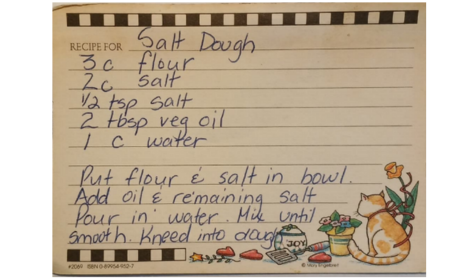 RECIPE FOR Salt Dough
3 c flour
2 c salt
1/2 tsp salt
2 tbsp veg oil
1 c water
Put flour & salt in bowl.
Add oil & remaining salt
Pour in water. Mix until
smooth. Kneed into dough
JOY
#2069 ISBN 0-89954-952-7
© Mary Engelbreit